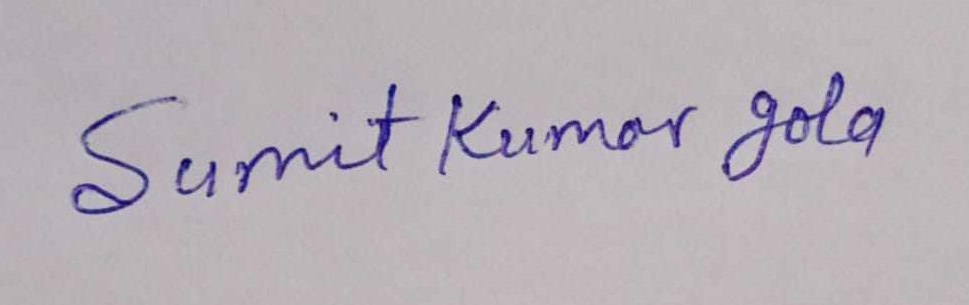 Sumit Kumar gola